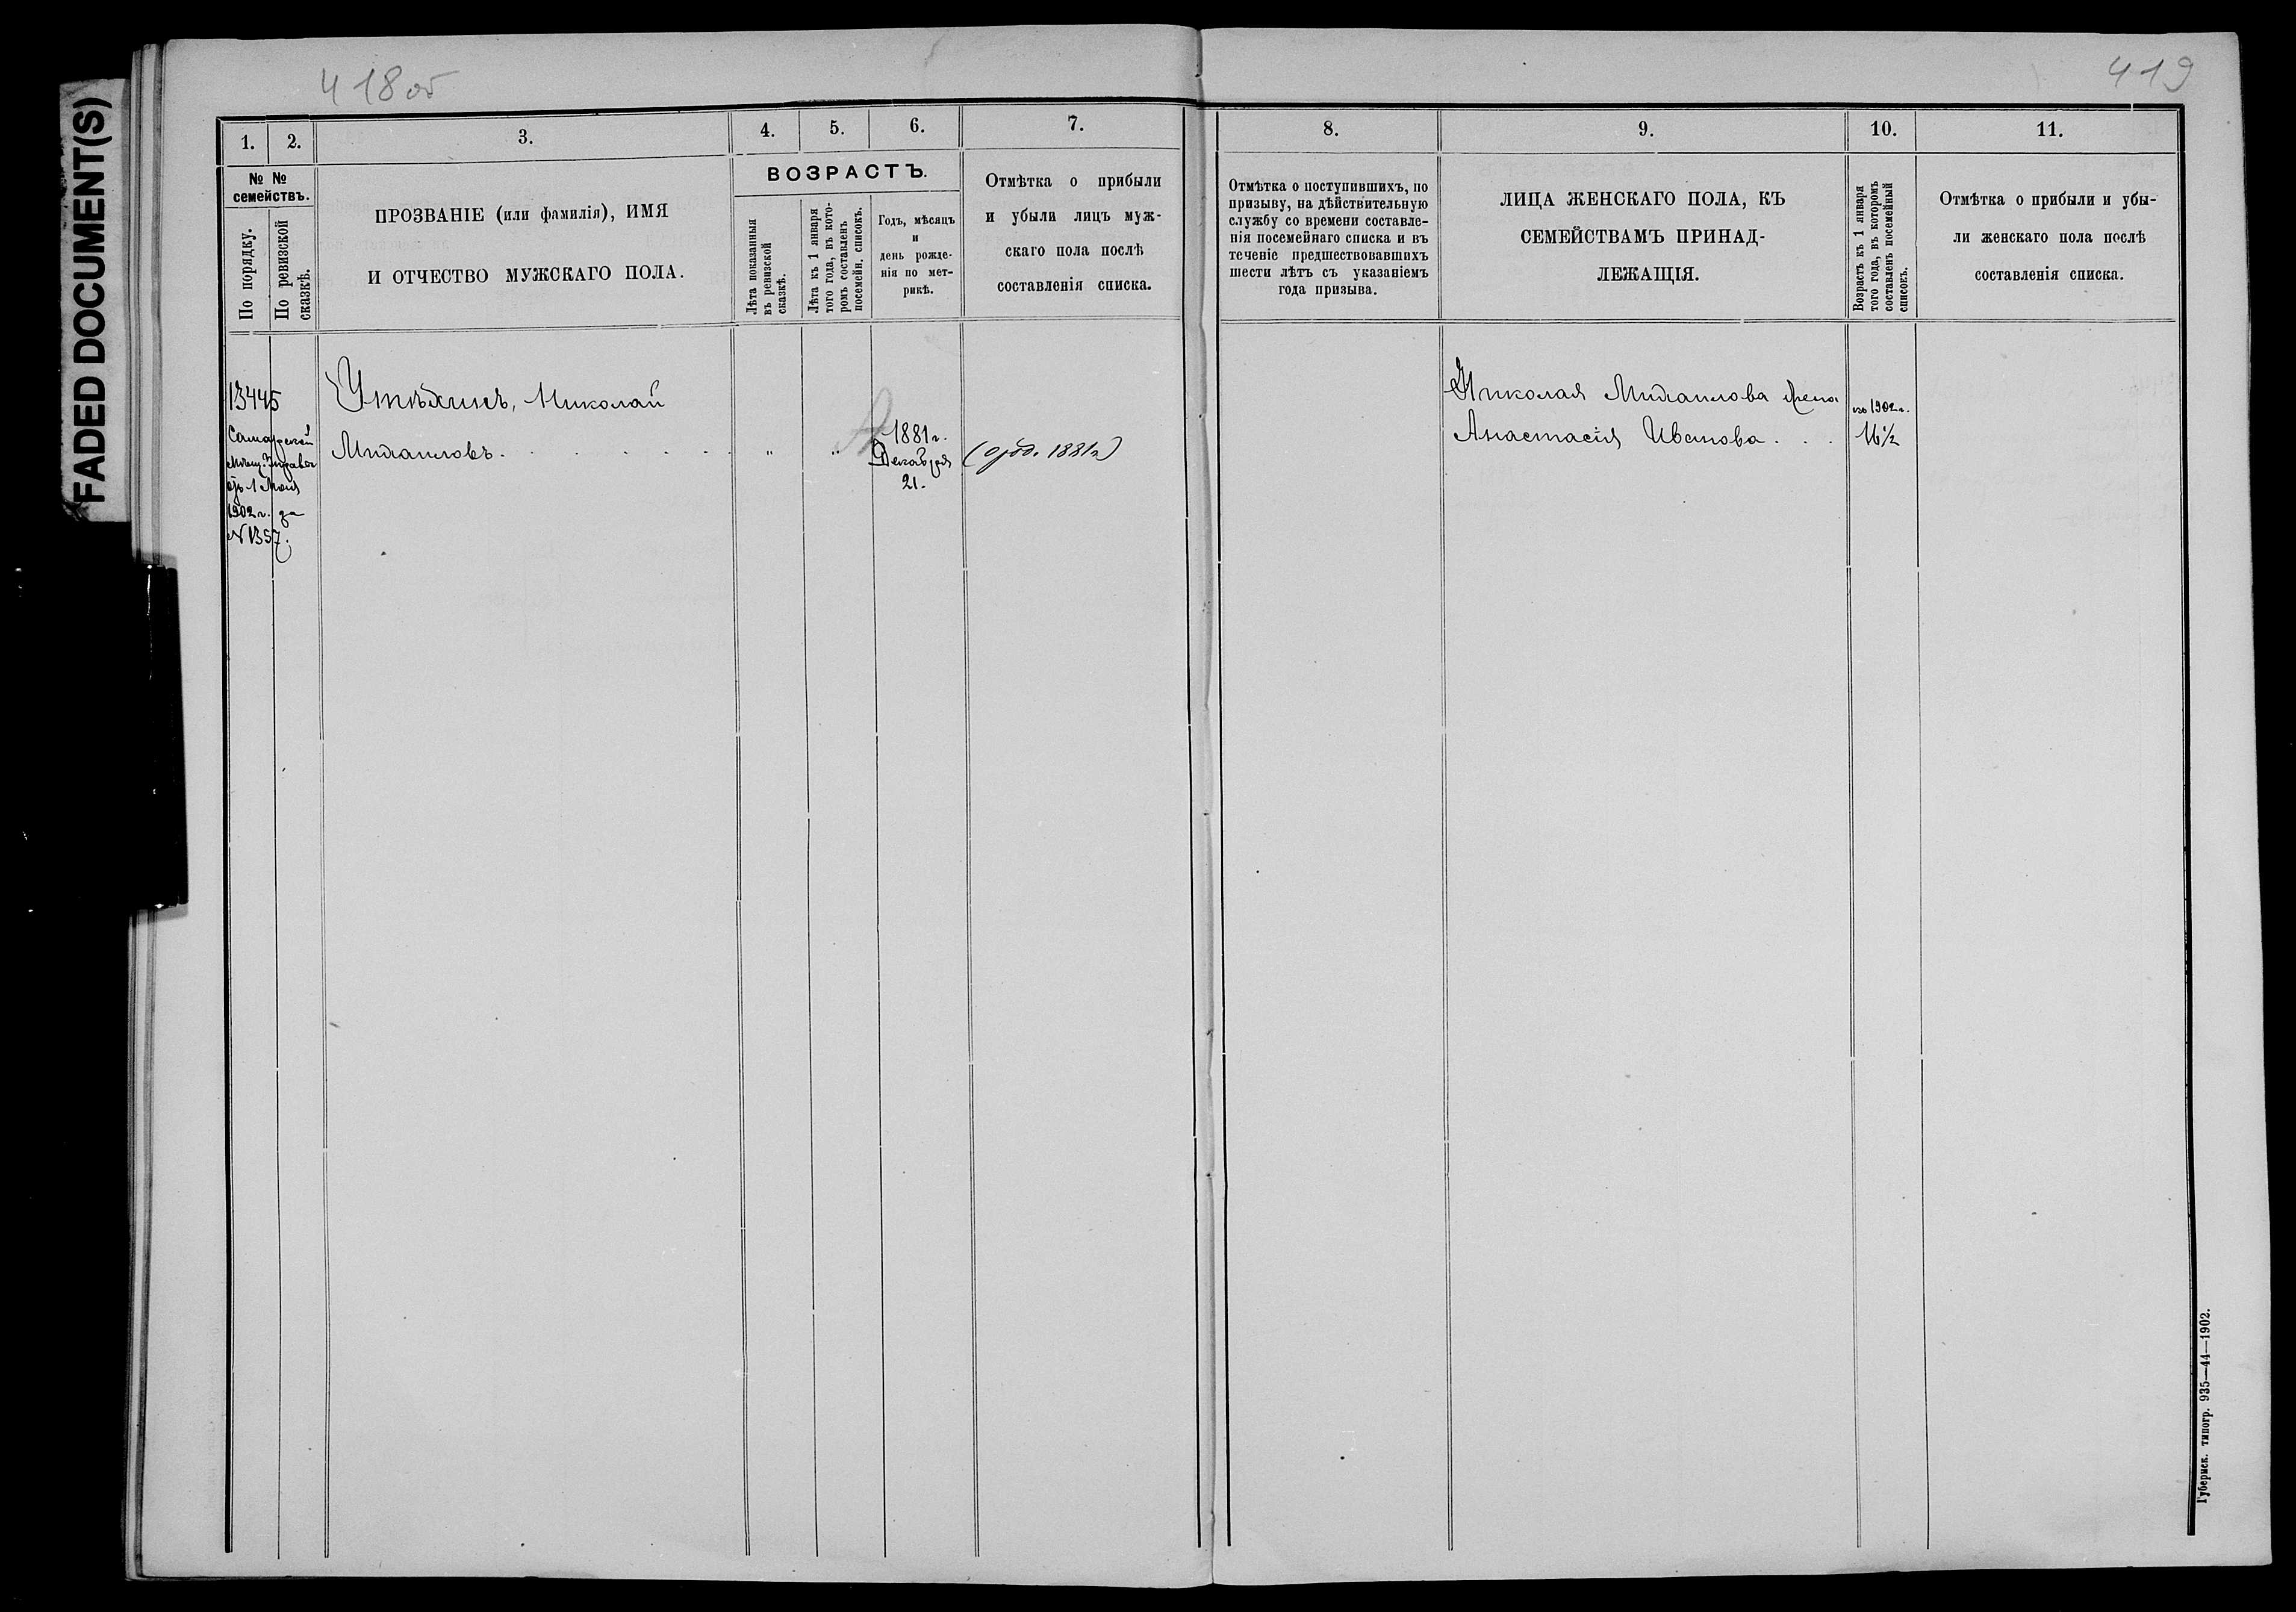 FADED DOCUMENT(S)
418об
419
1.
2.
3.
4.
5.
6.
7.
8.
9.
10.
11.
№ №
семействъ.
По порядку.
По ревизской
сказкѣ.
ПРОЗВАНІЕ (или фамилія), ИМЯ
И ОТЧЕСТВО МУЖСКАГО ПОЛА.
ВОЗРАСТЪ.
Лѣта показанныя
въ ревизской
сказкѣ.
Лѣта къ 1 января
того года, въ кото-
ромъ составленъ
посемейн. списокъ.
Годъ, мѣсяцъ
и
день рожде-
нія по мет-
рикѣ.
Отмѣтка о прибыли
и убыли лицъ муж-
скаго пола послѣ
составленія списка.
Отмѣтка о поступившихъ, по
призыву, на дѣйствительную
службу со времени составле-
нія посемейнаго списка и въ
теченіе предшествовавшихъ
шести лѣтъ съ указаніемъ
года призыва.
ЛИЦА ЖЕНСКАГО ПОЛА, КЪ
СЕМЕЙСТВАМЪ ПРИНАД-
ЛЕЖАЩІЯ.
Возрастъ къ 1 января
того года, въ которомъ
составленъ посемейный
списокъ.
Отмѣтка о прибыли и убы-
ли женскаго пола послѣ
составленія списка.
13445
Самарской
Мѣщ. Управы
1902 г. за
N 1357.
Утѣхинъ, Николай
Михаиловъ. . . . . . .
" "
1881 г.
Декабря
21.
1881 г)
Николая Михаилова жена
Анастасія Иванова. . .
1902 г.
16½
Губернск. типогр. 935—44—1902.